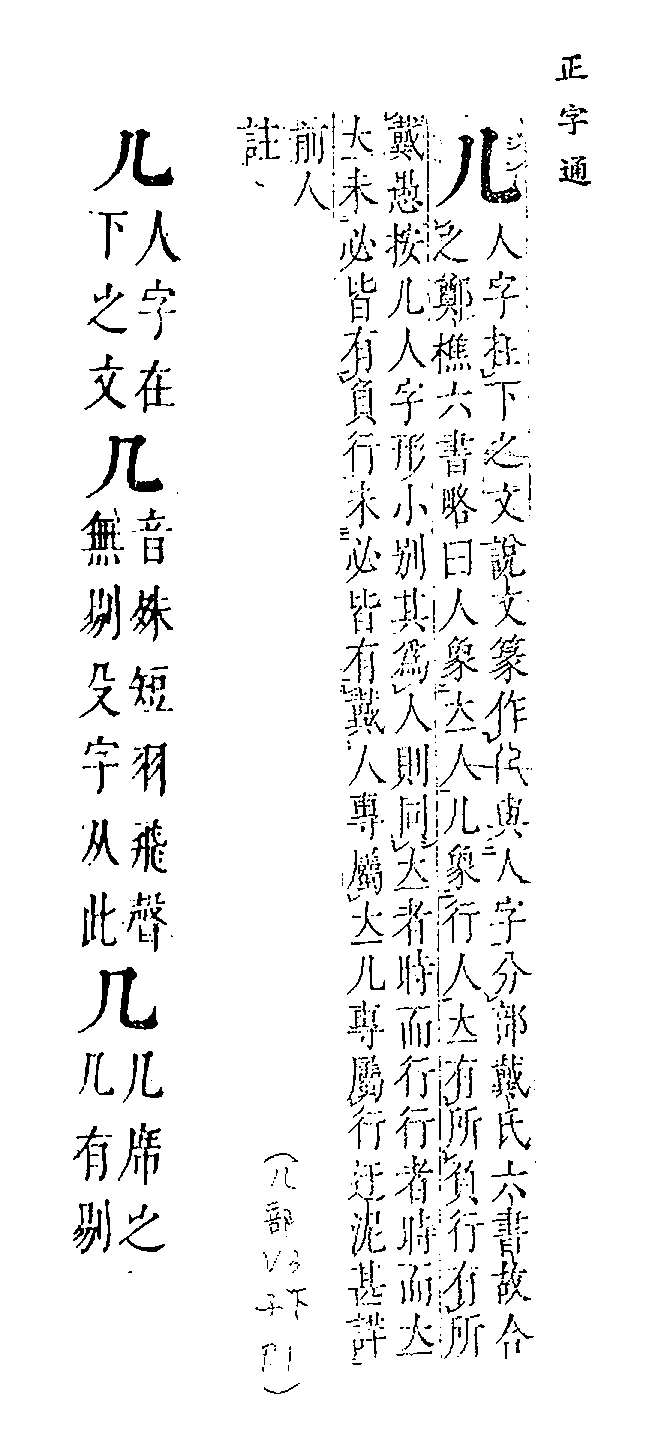 正字通
儿 人字在下之文說文篆作與人字分部戴氏六書故合
之鄭樵六書略曰人象立人儿象行人立有所負行有所
戴愚按儿人字形小別其爲人則同立者時而行行者時而立
立未必皆有負行未必皆有戴人專屬立儿專屬行迂泥甚詳
前人
註
儿
人字在
下之文
几
音殊短羽飛聲
無剔殳字从此
几
几席之
几有剔